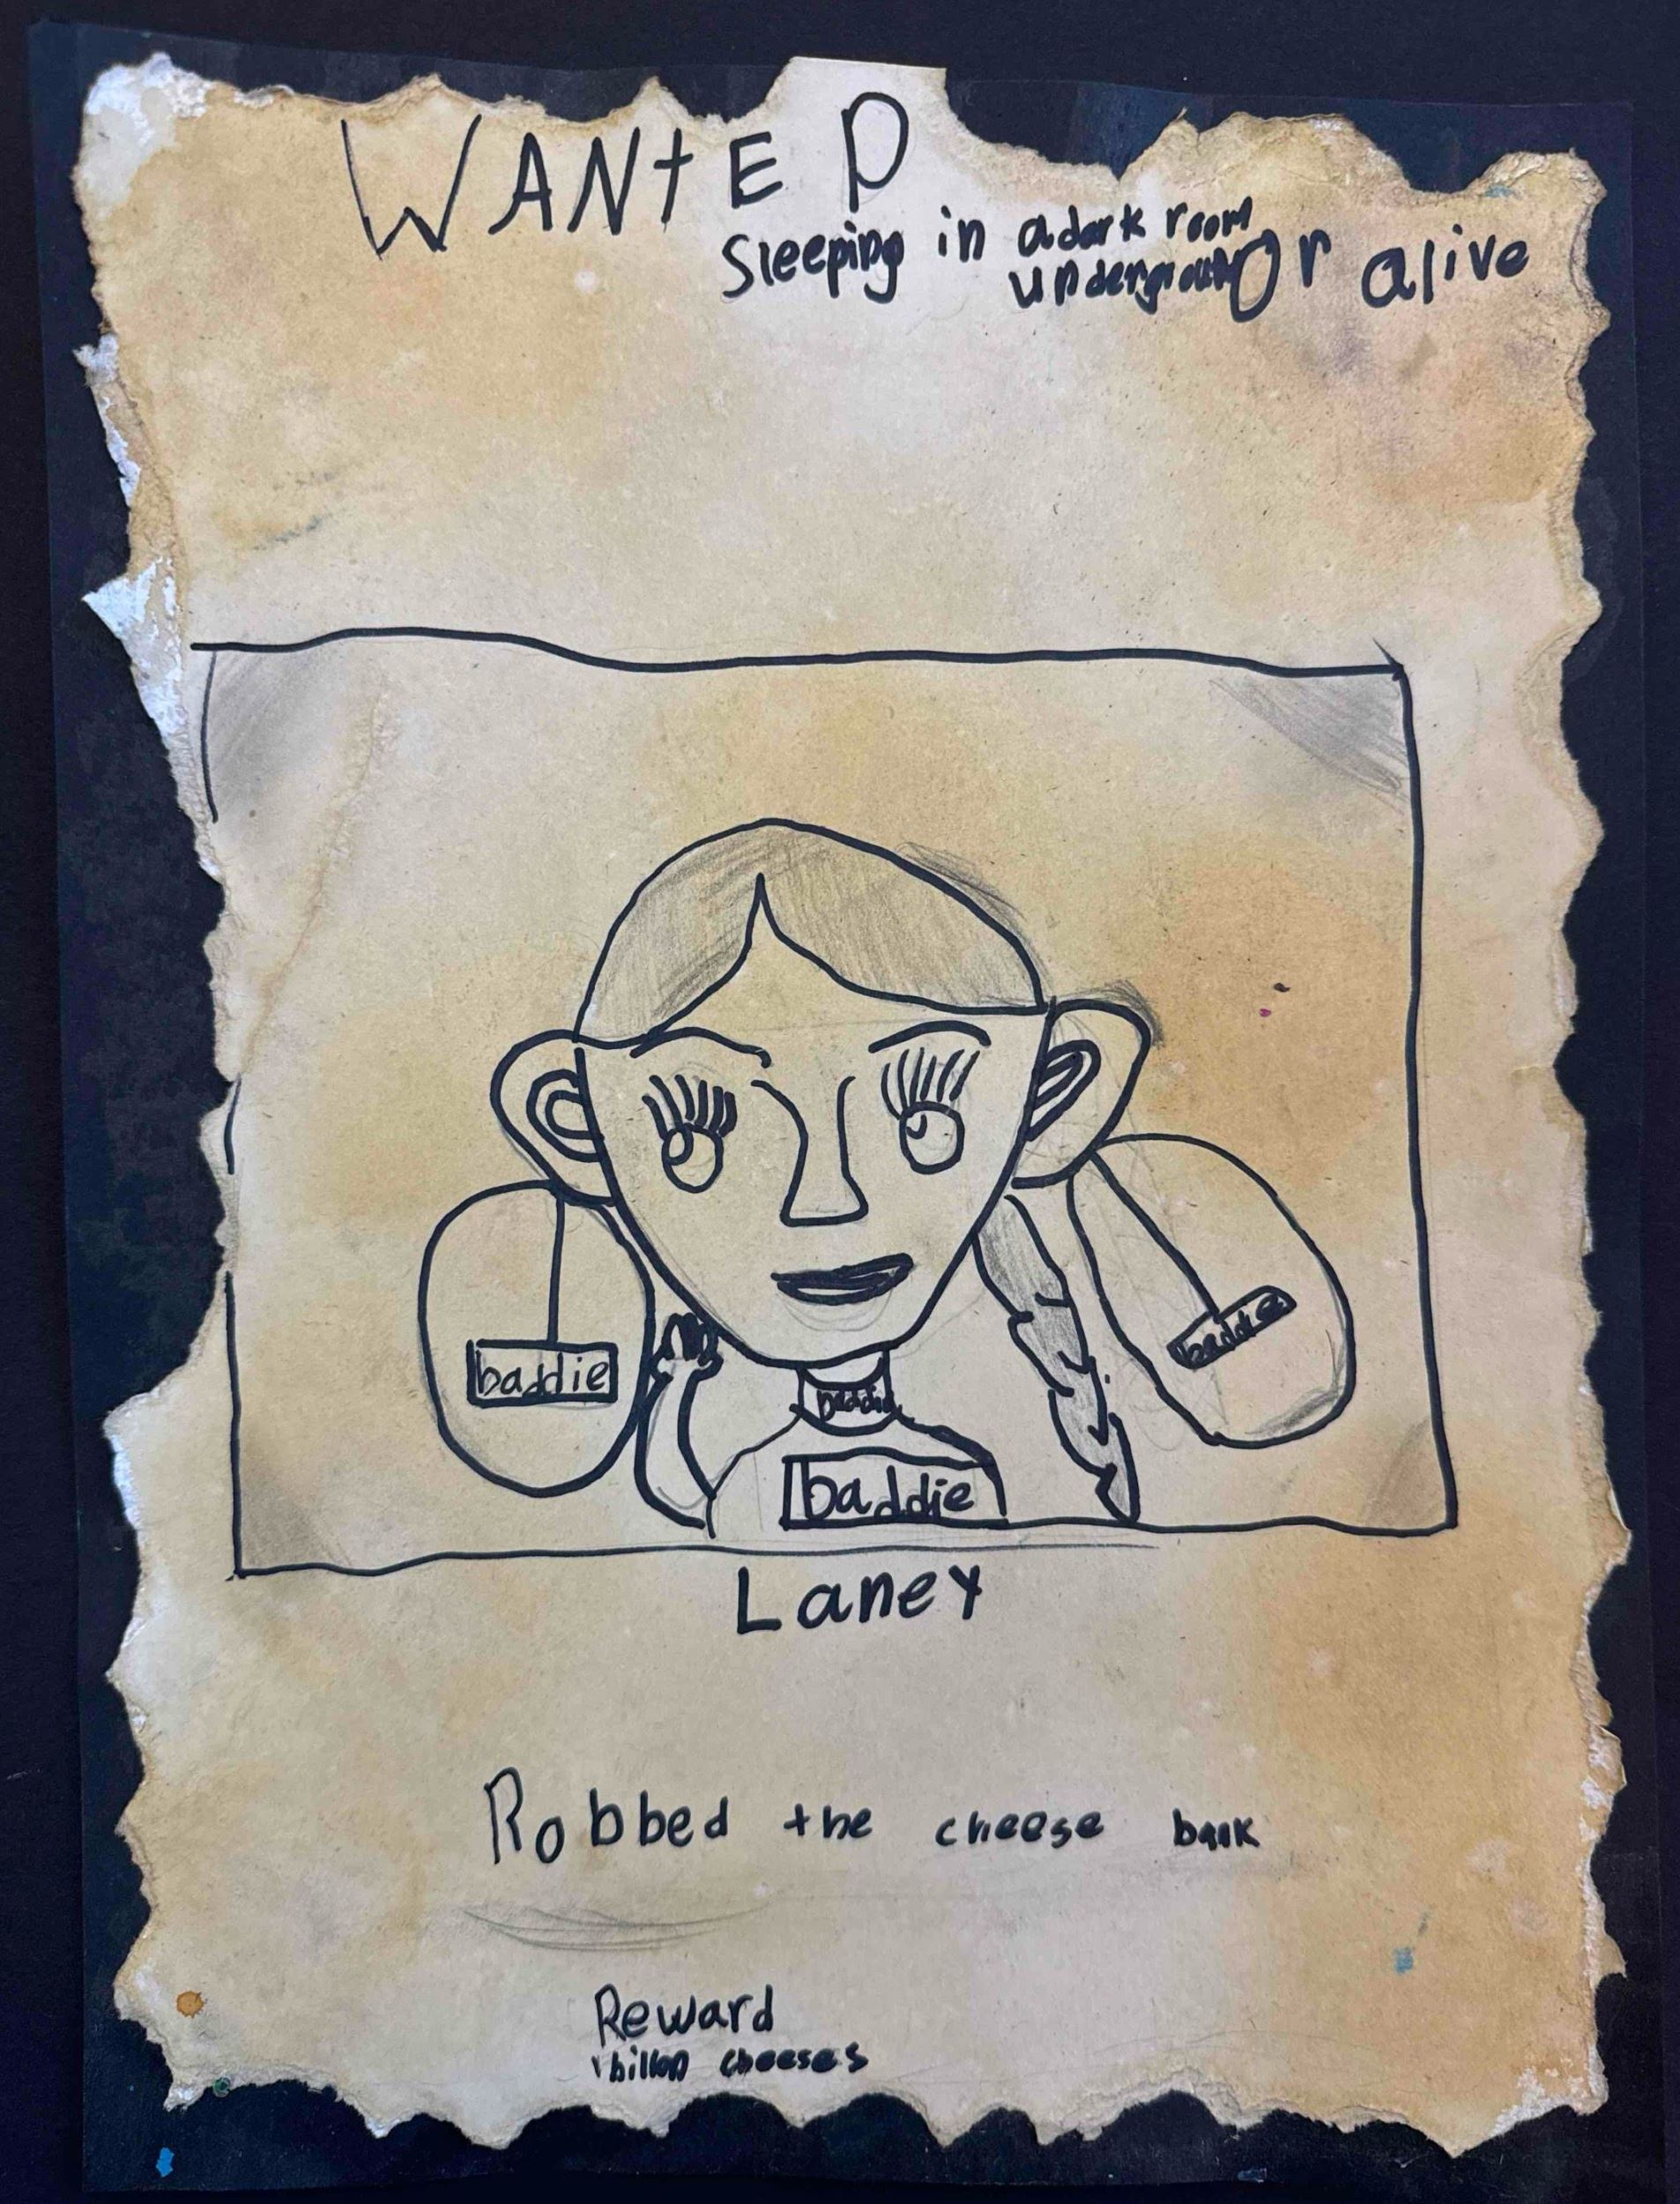 WANtED
Sleeping in a dark room
underground Or alive
baddie
baddie
baddie
baddie
Laney
Robbed the cheese bank
Reward
1 billon cheeses